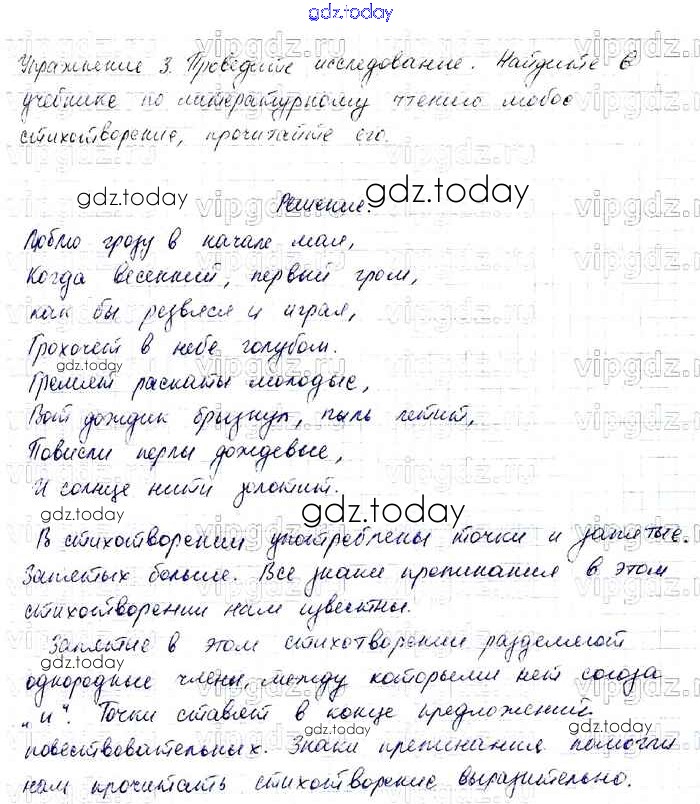 gdz.today
Упражнение 3. Проведите исследование. Найдите в
учебнике по литературному чтению любое
стихотворение, прочитайте его.
gdz.today
Решение.
gdz.today
Люблю грозу в начале мая,
Когда весенний, первый гром,
как бы резвяся и играя,
Грохочет в небе голубом.
gdz.today
Гремят раскаты молодые,
Вот дождик брызнул, пыль летит,
Повисли перлы дождевые,
И солнце нити золотит.
gdz.today
В стихотворении употреблены точки и запятые.
Запятых больше. Все знаки препинания в этом
стихотворении нам известны.
Запятые в этом стихотворении разделяют
gdz.today
однородные члены, между которыми нет союза
„и". Точки ставят в конце предложений
gdz.today
повествовательных. Знаки препинания помогли
нам прочитать стихотворение выразительно.
vipgdz.ru